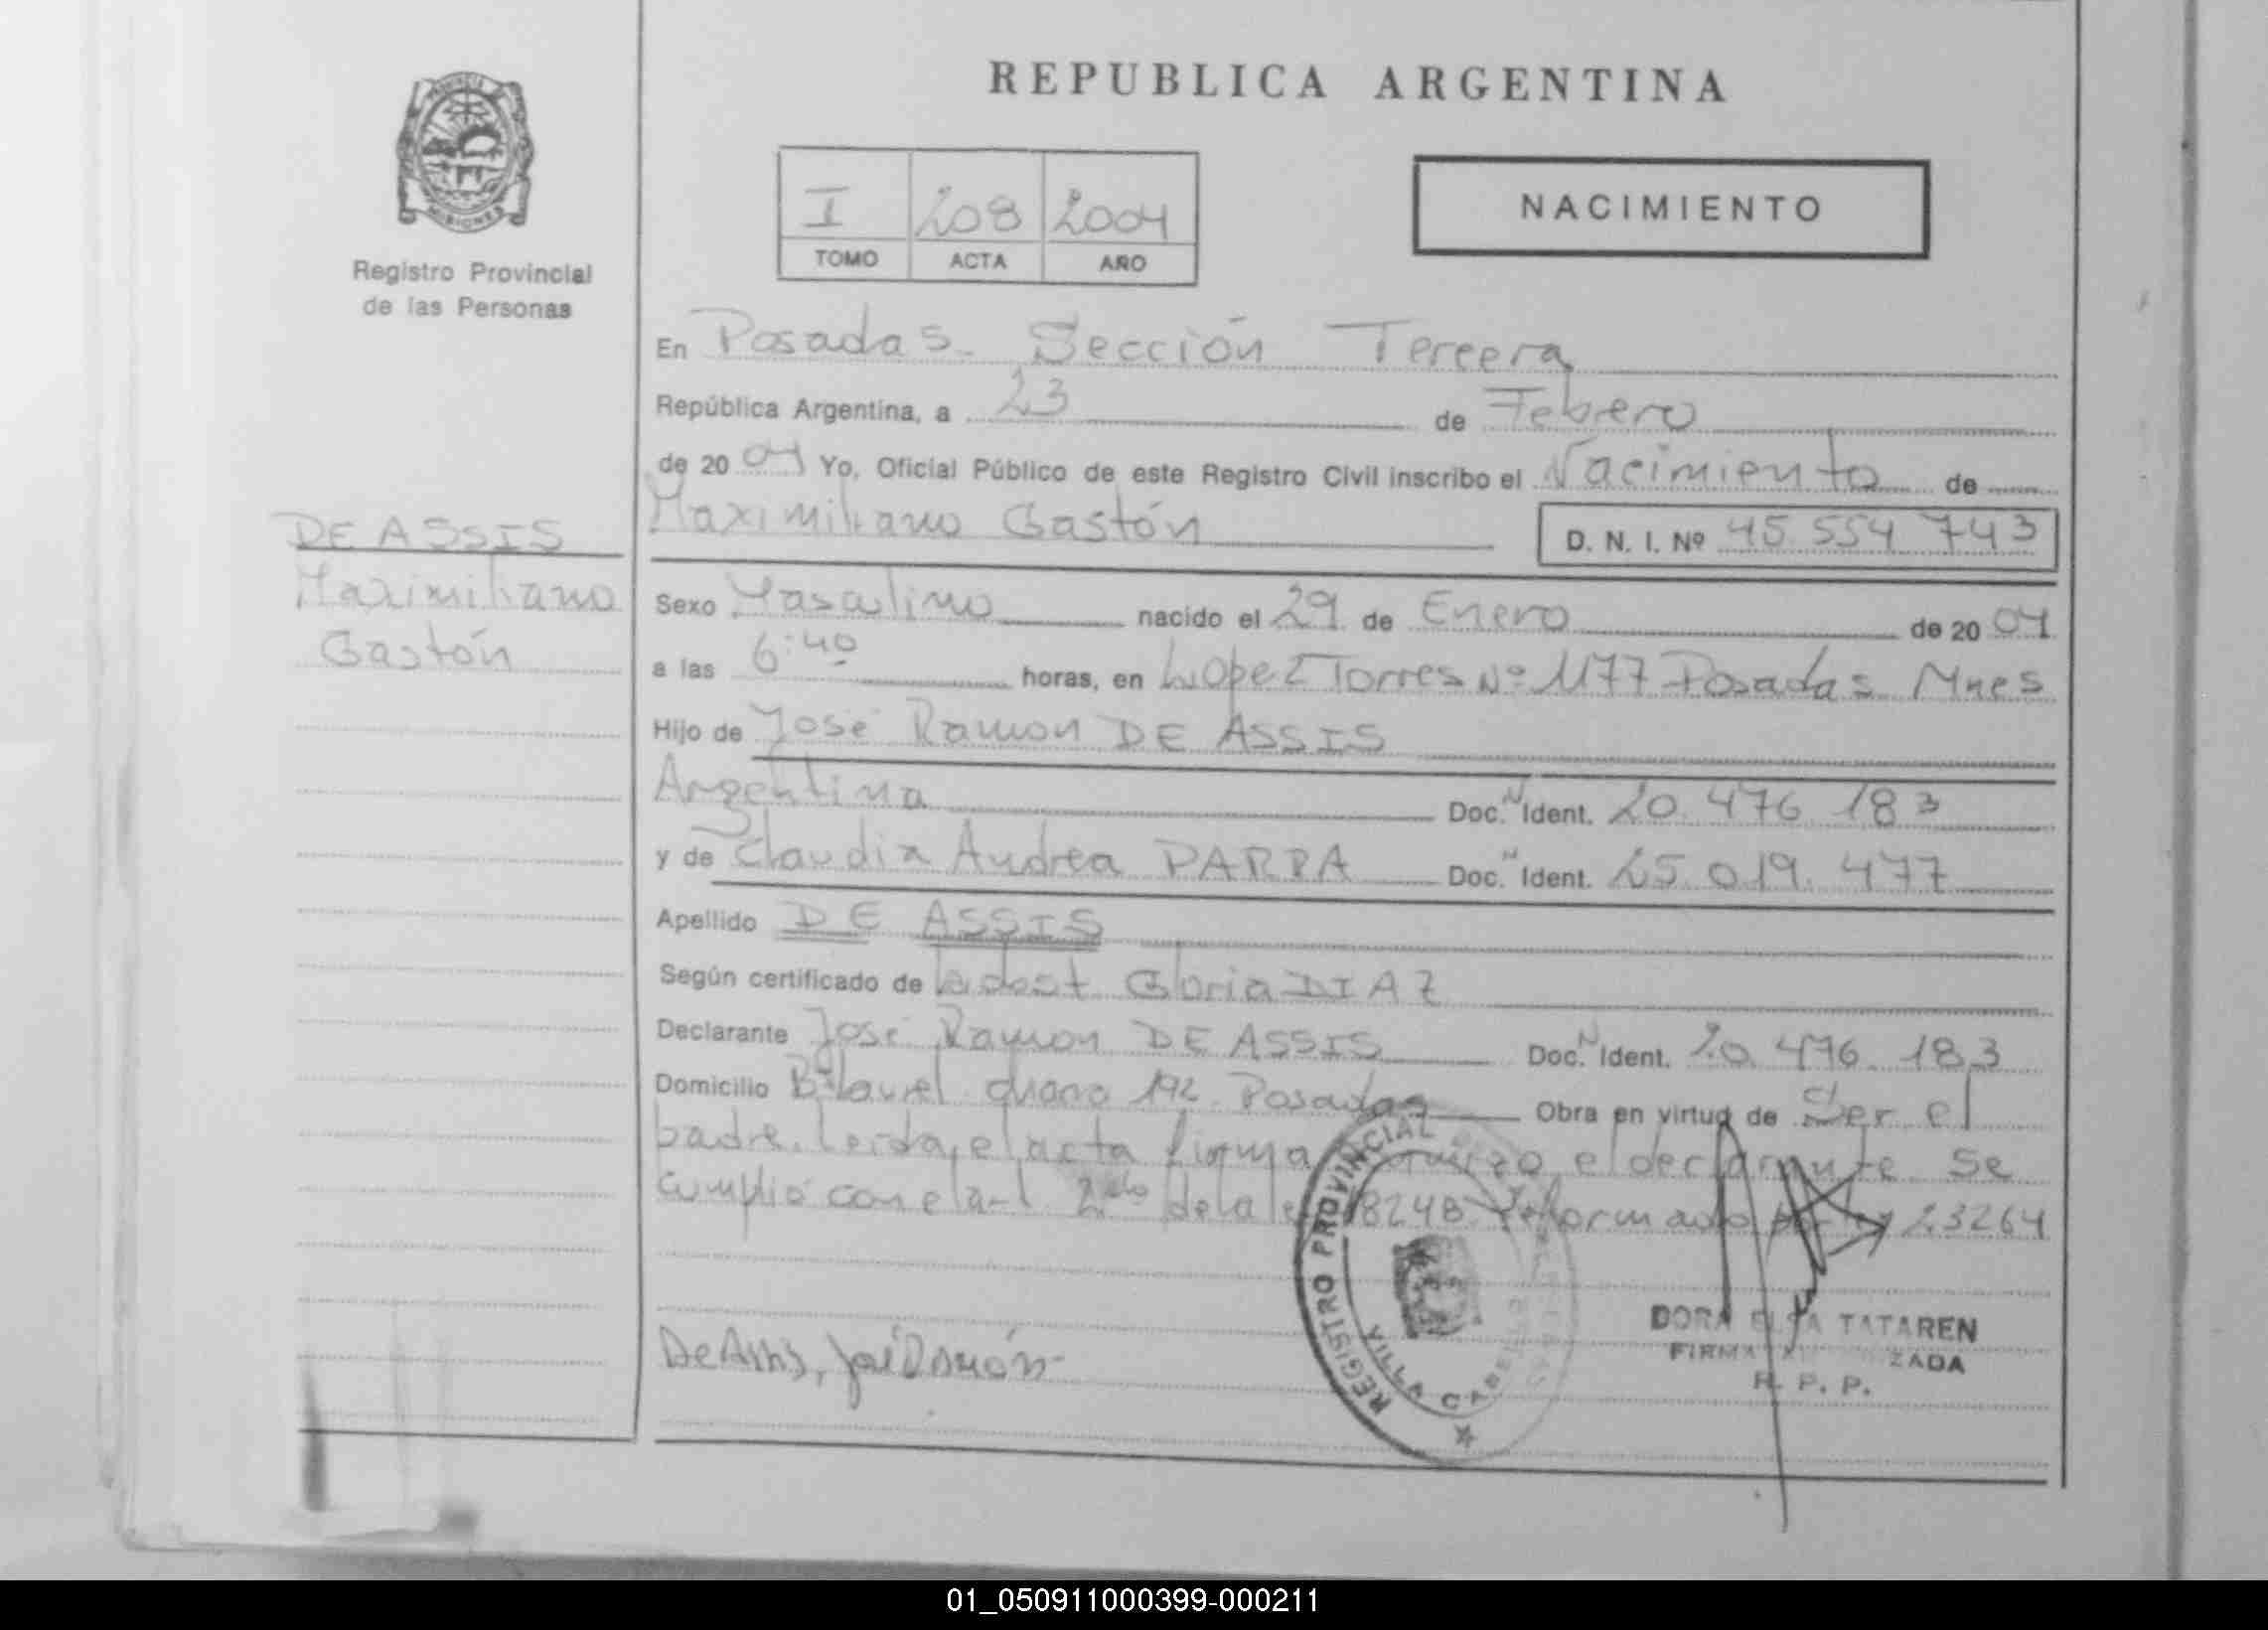 REPUBLICA ARGENTINA
PROVINCIA
MISIONES
Registro Provincial
de las Personas
I 208 2004
TOMO ACTA AÑO
NACIMIENTO
En Posadas. Sección Tercera
República Argentina, a 23 de Febrero
de 20 04 Yo, Oficial Público de este Registro Civil inscribo el Nacimiento de
Maximiliano Gastón D. N. I. Nº 45 554 743
DE ASSIS
Maximiliano
Gastón
Sexo Masculino nacido el 29 de Enero de 20 04
a las 6:40 horas, en López Torres Nº 1177 Posadas Mnes
Hijo de José Ramon DE ASSIS
Argentina Doc. N Ident. 20.476.183
y de Claudia Andrea PARRA Doc. N Ident. 25.019.477
Apellido DE ASSIS
Según certificado de Gloria DIAZ
Declarante José Ramon DE ASSIS Doc. N Ident. 20.476.183
Domicilio 192 Posadas Obra en virtud de Ser el
padre. Leida el acta firma conmigo el declarante Se
Cumplió con el art 2do de la ley 18248 Reformado por ley 23264
REGISTRO PROVINCIAL
VILLA CABELLO
De Assis, José Ramón
DORA ELSA TATAREN
FIRMA AUTORIZADA
R. P. P.
01_050911000399-000211